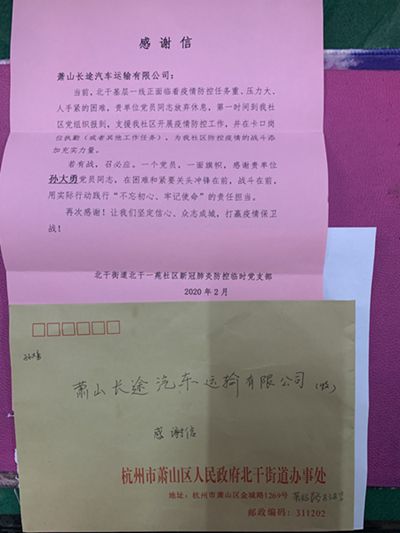 感谢信
萧山长途汽车运输有限公司：
当前，北干基层一线正面临着疫情防控任务重、压力大、
人手紧的困难，贵单位党员同志放弃休息，第一时间到我社
区党组织报到，支援我社区开展疫情防控工作，并在卡口岗
位执勤（或者其他工作任务），为我社区防控疫情的战斗添
加充实力量。
若有战，召必应。一个党员，一面旗帜，感谢贵单位
孙大勇党员同志，在困难和紧要关头冲锋在前，战斗在前，
用实际行动践行“不忘初心、牢记使命”的责任担当。
再次感谢！让我们坚定信心、众志成城，打赢疫情保卫
战！
北干街道北干一苑社区新冠肺炎防控临时党支部
2020年2月
萧山长途汽车运输有限公司（收）
感谢信
杭州市萧山区人民政府北干街道办事处
地址：杭州市萧山区金城路1269号
邮政编码：311202